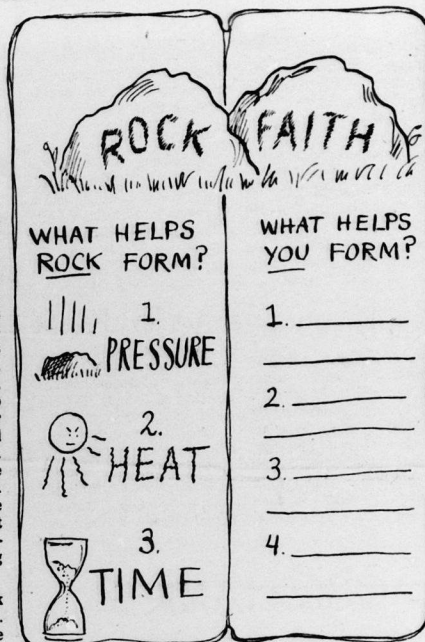 ROCK FAITH
WHAT HELPS
ROCK FORM?
1.
PRESSURE
2.
HEAT
3.
TIME
WHAT HELPS
YOU FORM?
1.
2.
3.
4.